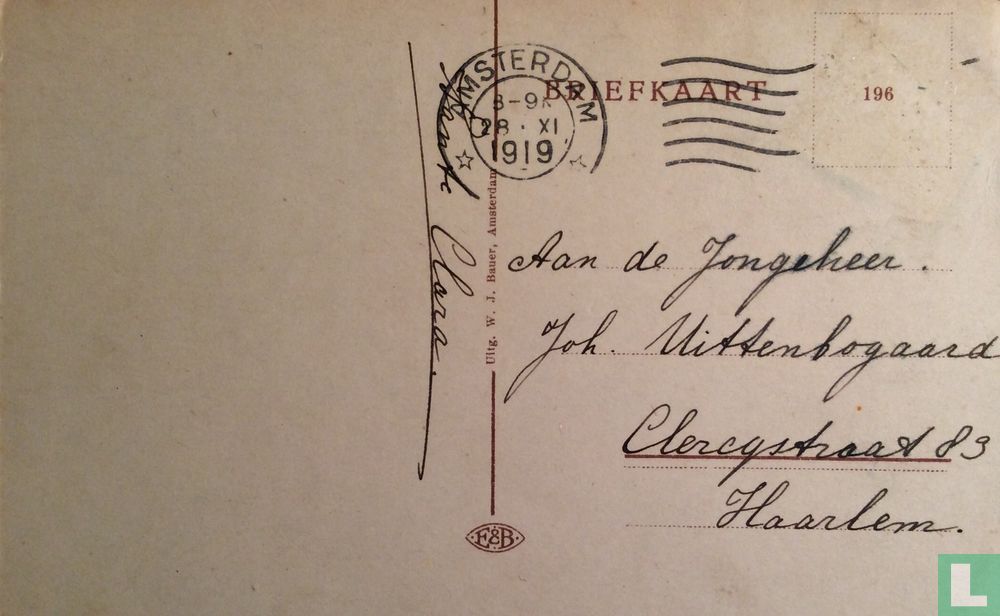 Tante Clara.
AMSTERDAM
8-9N
28 · XI
1919
BRIEFKAART
196
Uitg. W. J. Bauer, Amsterdam
Aan de Jongeheer.
Joh. Uittenbogaard
Clercqstraat 83
Haarlem.
F&B
L